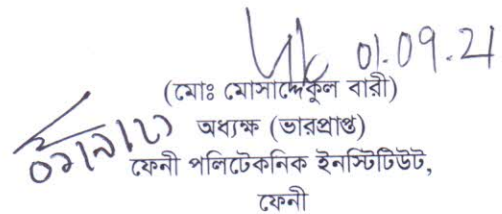 01.09.21
(মোঃ মোসাদ্দেকুল বারী)
অধ্যক্ষ (ভারপ্রাপ্ত)
ফেনী পলিটেকনিক ইনস্টিটিউট,
ফেনী